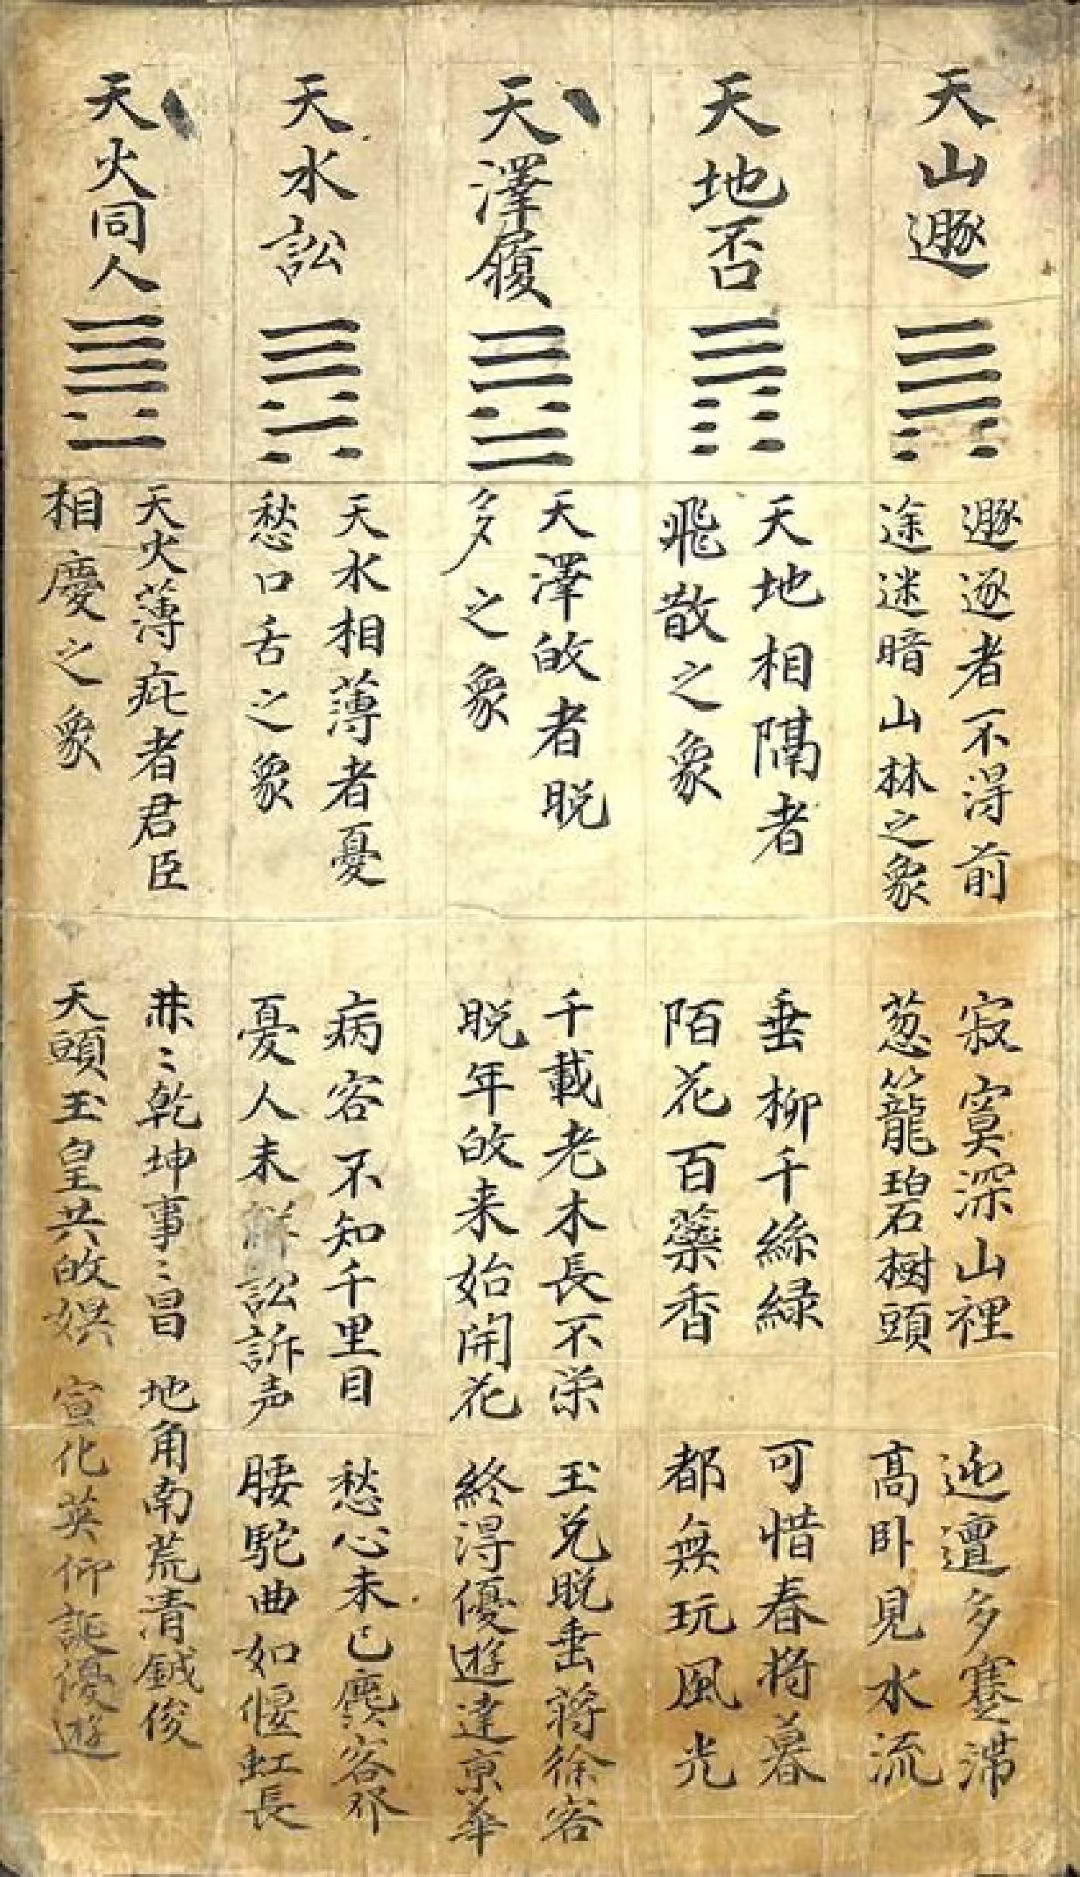 天山遯
遯逐者不得前
途迷暗山林之象
寂寞深山裡
葱籠碧樹頭
迍邅多蹇滯
高卧見水流
天地否
天地相隔者
飛散之象
垂柳千絲緑
陌花百藥香
可惜春将暮
都無玩風光
天澤履
天澤攸者脱
多之象
千載老木長不栄
脱年攸来始開花
玉兑脱垂蒋徐容
終得優遊達京華
天水訟
天水相薄者憂
愁口舌之象
病容不知千里目
憂人未解訟訴声
愁心未已容
腰駝曲如偃虹長
天火同人
天火薄疪者君臣
相慶之象
〻乾坤事〻昌
天頭玉皇共攸娯
地角南荒清鉞俊
宣化英仰誕優遊